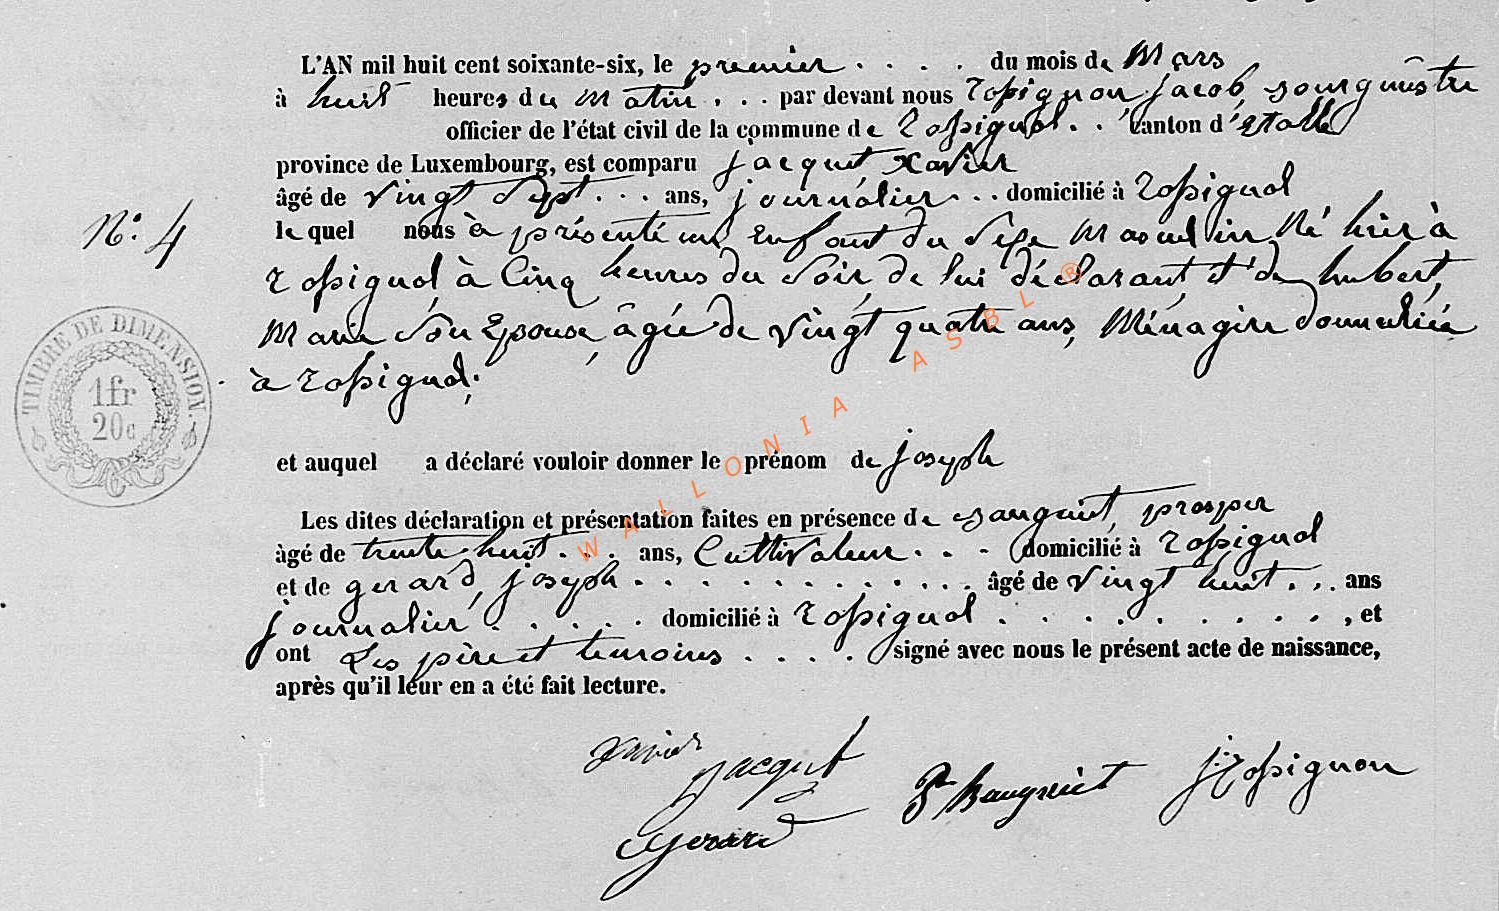 L'AN mil huit cent soixante-six, le premier . . . . du mois de Mars
à huit heures du Matin . . . par devant nous Rossignon jacob Bourgmestre
officier de l'état civil de la commune de Rossignol . . Canton d'Etalle
province de Luxembourg, est comparu jacquet, Xavier
âgé de vingt Sept . . . ans, journalier . . . domicilié à Rossignol
N°. 4
le quel nous à présenté un Enfant du Sexe Masculin Né hier à
Rossignol à Cinq heures du Soir de lui déclarant, et de hubert,
Marie Son Epouse, âgée de vingt quatre ans, Ménagère domiciliée
à Rossignol;
TIMBRE DE DIMENSION.
1fr
20c
et auquel a déclaré vouloir donner le prénom de joseph
Les dites déclaration et présentation faites en présence de Bauguiet, prosper
âgé de trente huit . . . ans, Cultivateur . . . domicilié à Rossignol
et de gerard, joseph . . . . . . . . . . . . . âgé de vingt huit . . . ans
journalier . . . . . domicilié à Rossignol . . . . . . . . . . , et
ont Les père et temoins . . . . signé avec nous le présent acte de naissance,
après qu'il leur en a été fait lecture.
Xavier
jacquet
P. Bauguiet
J. Rossignon
Gerard
WALLONIA ASBL ®